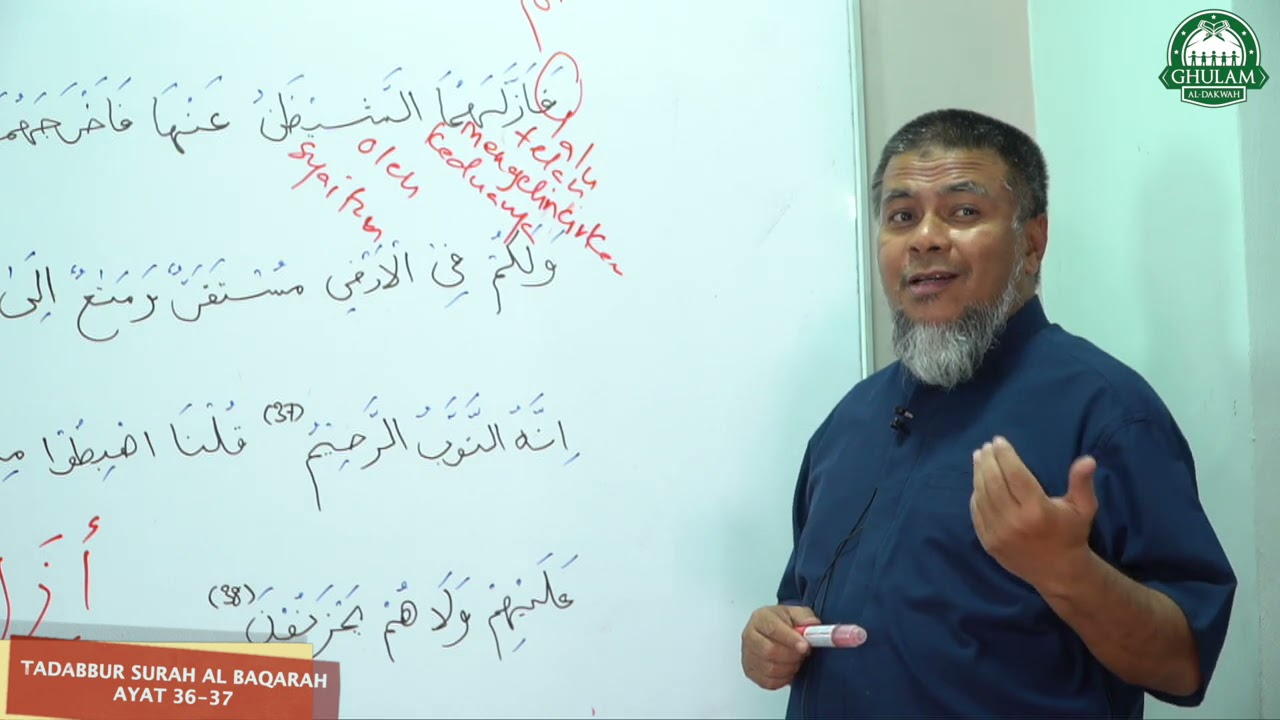 فَاَزَلَّهُمَا الشَّيْطٰنُ عَنْهَا فَاَخْرَجَهُمَا
lalu
telah
mengelincirkan
keduanya
oleh
syaitan
وَلَكُمْ فِى الْاَرْضِ مُسْتَقَرٌّ وَّمَتَاعٌ اِلٰى
اِنَّهُ التَّوَّابُ الرَّحِيْمُ (37) قُلْنَا اهْبِطُوْا
عَلَيْهِمْ وَلَا هُمْ يَحْزَنُوْنَ (38)
GHULAM
AL-DAKWAH
TADABBUR SURAH AL BAQARAH
AYAT 36-37